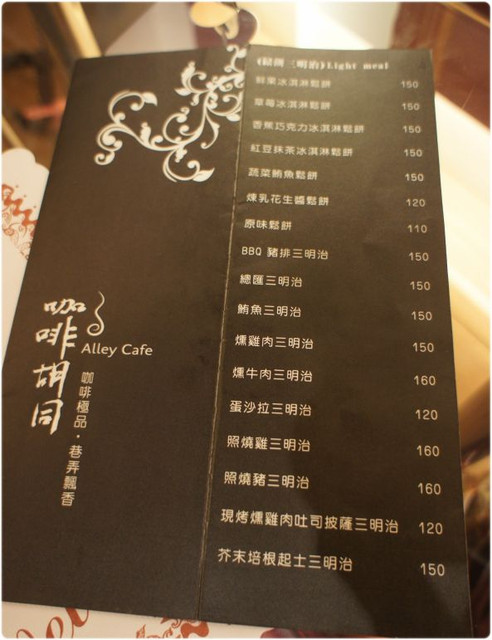 (鬆餅三明治)Light meal
鮮果冰淇淋鬆餅 150
草莓冰淇淋鬆餅 150
香蕉巧克力冰淇淋鬆餅 150
紅豆抹茶冰淇淋鬆餅 150
蔬菜鮪魚鬆餅 150
煉乳花生醬鬆餅 120
原味鬆餅 110
BBQ 豬排三明治 150
總匯三明治 150
鮪魚三明治 150
燻雞肉三明治 150
燻牛肉三明治 160
蛋沙拉三明治 120
照燒雞三明治 160
照燒豬三明治 160
現烤燻雞肉吐司披薩三明治 120
芥末培根起士三明治 150
咖啡胡同
Alley Cafe
咖啡極品・巷弄飄香